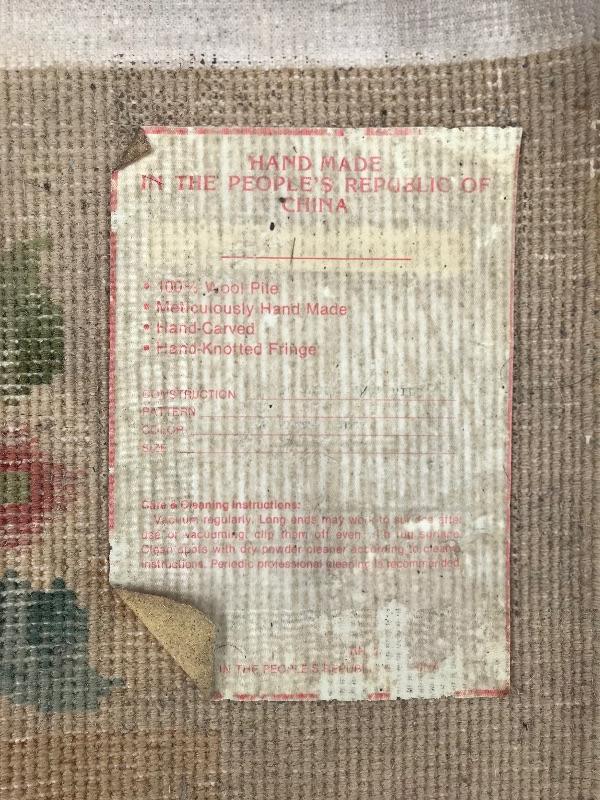 HAND MADE
IN THE PEOPLE'S REPUBLIC OF
CHINA
• 100% Wool Pile
• Meticulously Hand Made
• Hand-Carved
• Hand-Knotted Fringe
CONSTRUCTION
PATTERN
COLOR
SIZE
Care & Cleaning Instructions:
Vacuum regularly. Long ends may work to surface after
use or vacuuming, clip them off even rug surface.
Clean spots with dry powder cleaner according to
instructions. Periodic professional cleaning is recommended.
IN THE PEOPLE'S